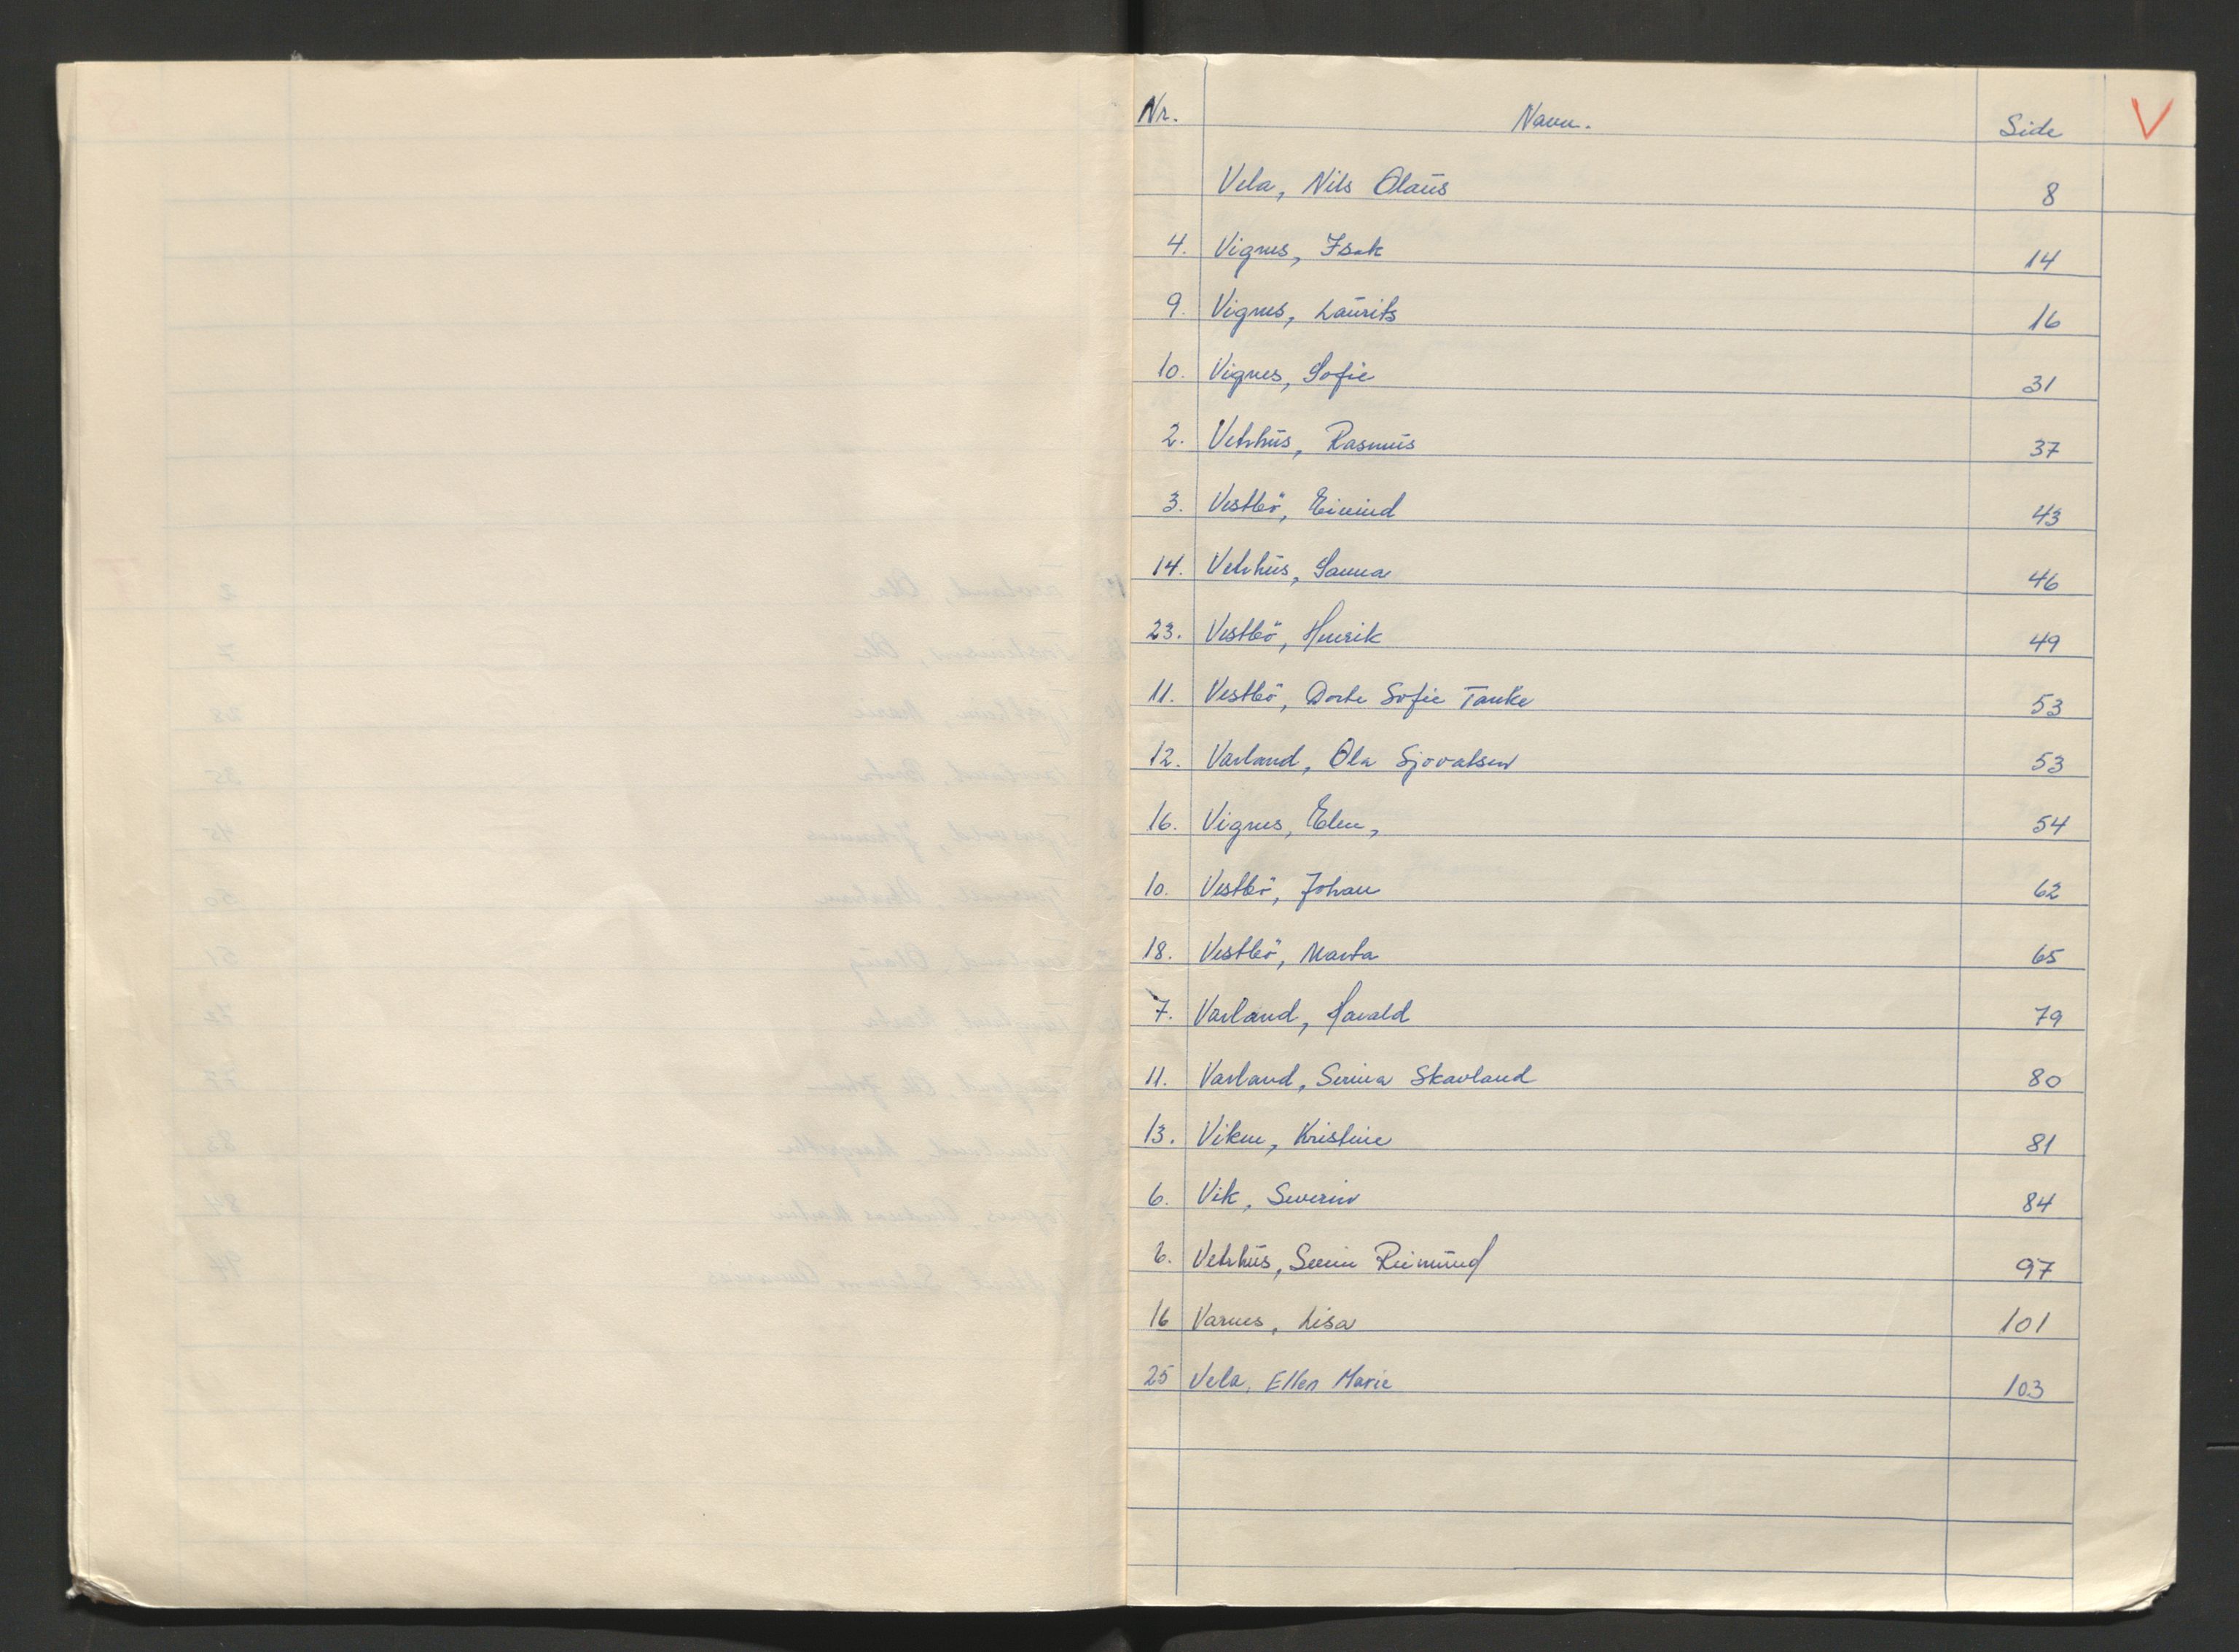 Nr. Navn. Side V
Vela, Nils Olaus 8
4. Vignes, Isak 14
9. Vignes, Laurits 16
10. Vignes, Sofie 31
2. Vetrhus, Rasmus 37
3. Vestbö, Eivind 43
14. Vetrhus, Sanna 46
23. Vestbö, Henrik 49
11. Vestbö, Dorte Sofie Tanke 53
12. Varland, Ola Sjovatsen 53
16. Vignes, Elen, 54
10. Vestbö, Johan 62
18. Vestbö, Marta 65
7. Varland, Harald 79
11. Varland, Serina Skavland 80
13. Viken, Kristine 81
6. Vik, Severin 84
6. Vetrhus, Reimund 97
16 Varnes, Lisa 101
25 Vela, Ellen Marie 103